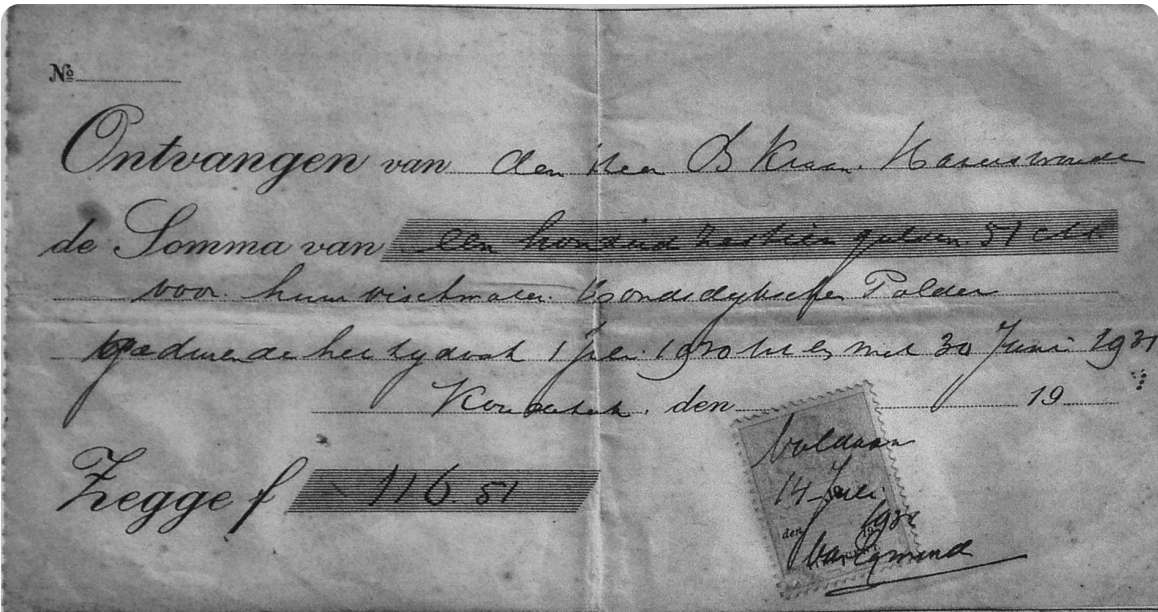 No
Ontvangen van den Heer B Kraan. Hazerswoude
de Somma van een honderd zestien gulden 51 cts.
voor huur vischwater. Polder
gedurende het tydvak 1 Juli 1930 tot en met 30 Juni 1931
Koudekerk. den 19
Zegge f 116.51
Voldaan
14 Juli
den 1931
van Egmond